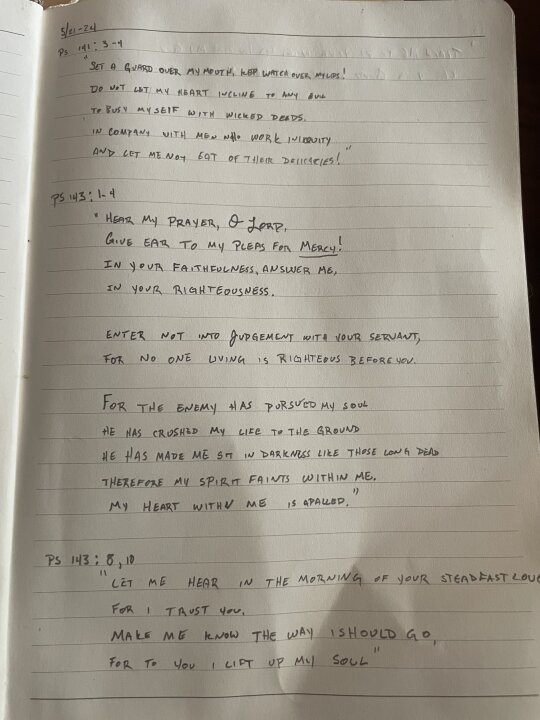 5/21-24
PS 141: 3-4
"SET A GUARD OVER MY MOUTH, KEEP WATCH OVER MY LIPS!
DO NOT LET MY HEART INCLINE TO ANY EVIL
TO BUSY MYSELF WITH WICKED DEEDS.
IN COMPANY WITH MEN WHO WORK INIQUITY
AND LET ME NOT EAT OF THEIR DELICACIES!"
PS 143: 1-4
"HEAR MY PRAYER, O LORD,
GIVE EAR TO MY PLEAS FOR MERCY!
IN YOUR FAITHFULNESS, ANSWER ME,
IN YOUR RIGHTEOUSNESS.
ENTER NOT INTO JUDGEMENT WITH YOUR SERVANT,
FOR NO ONE LIVING IS RIGHTEOUS BEFORE YOU.
FOR THE ENEMY HAS PURSUED MY SOUL
HE HAS CRUSHED MY LIFE TO THE GROUND
HE HAS MADE ME SIT IN DARKNESS LIKE THOSE LONG DEAD
THEREFORE MY SPIRIT FAINTS WITHIN ME.
MY HEART WITHIN ME IS APALLED."
PS 143: 8, 10
"LET ME HEAR IN THE MORNING OF YOUR STEADFAST LOVE
FOR I TRUST YOU.
MAKE ME KNOW THE WAY I SHOULD GO,
FOR TO YOU I LIFT UP MY SOUL"